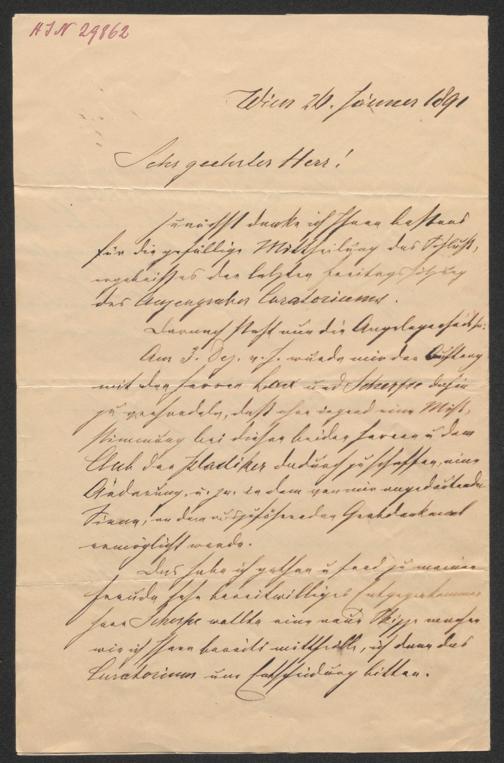 HIN 29862
Wien 26. Jänner 1891
Sehr geehrter Herr!
Zunächst danke ich Ihnen bestens
für die gefällige Mittheilung des Schluß,
ergebnisses der letzten Freitagssitzung
des Anzengruber Curatoriums.
Darnach steht nun die Angelegenheit so:
Am 3. Dez. v. J. wurde mir der Auftrag
mit den Herren und Scherpe dahin
zu verhandeln, daß ohne irgend eine Miß,
stimmung bei diesen beiden Herren u dem
Club der Plastiker dadurch zu schaffen, eine
Änderung, u. zw. in dem von mir angedeuteten
Sinne, an dem auszuführenden Grabdenkmal
ermöglicht werde.
Das habe ich gethan u fand zu meiner
Freude sehr bereitwilliges Entgegenkommen
Herr Scherpe wollte eine neue Skizze machen
wie ich Ihnen bereits mittheilte, ich dann das
Curatorium um Entscheidung bitten.